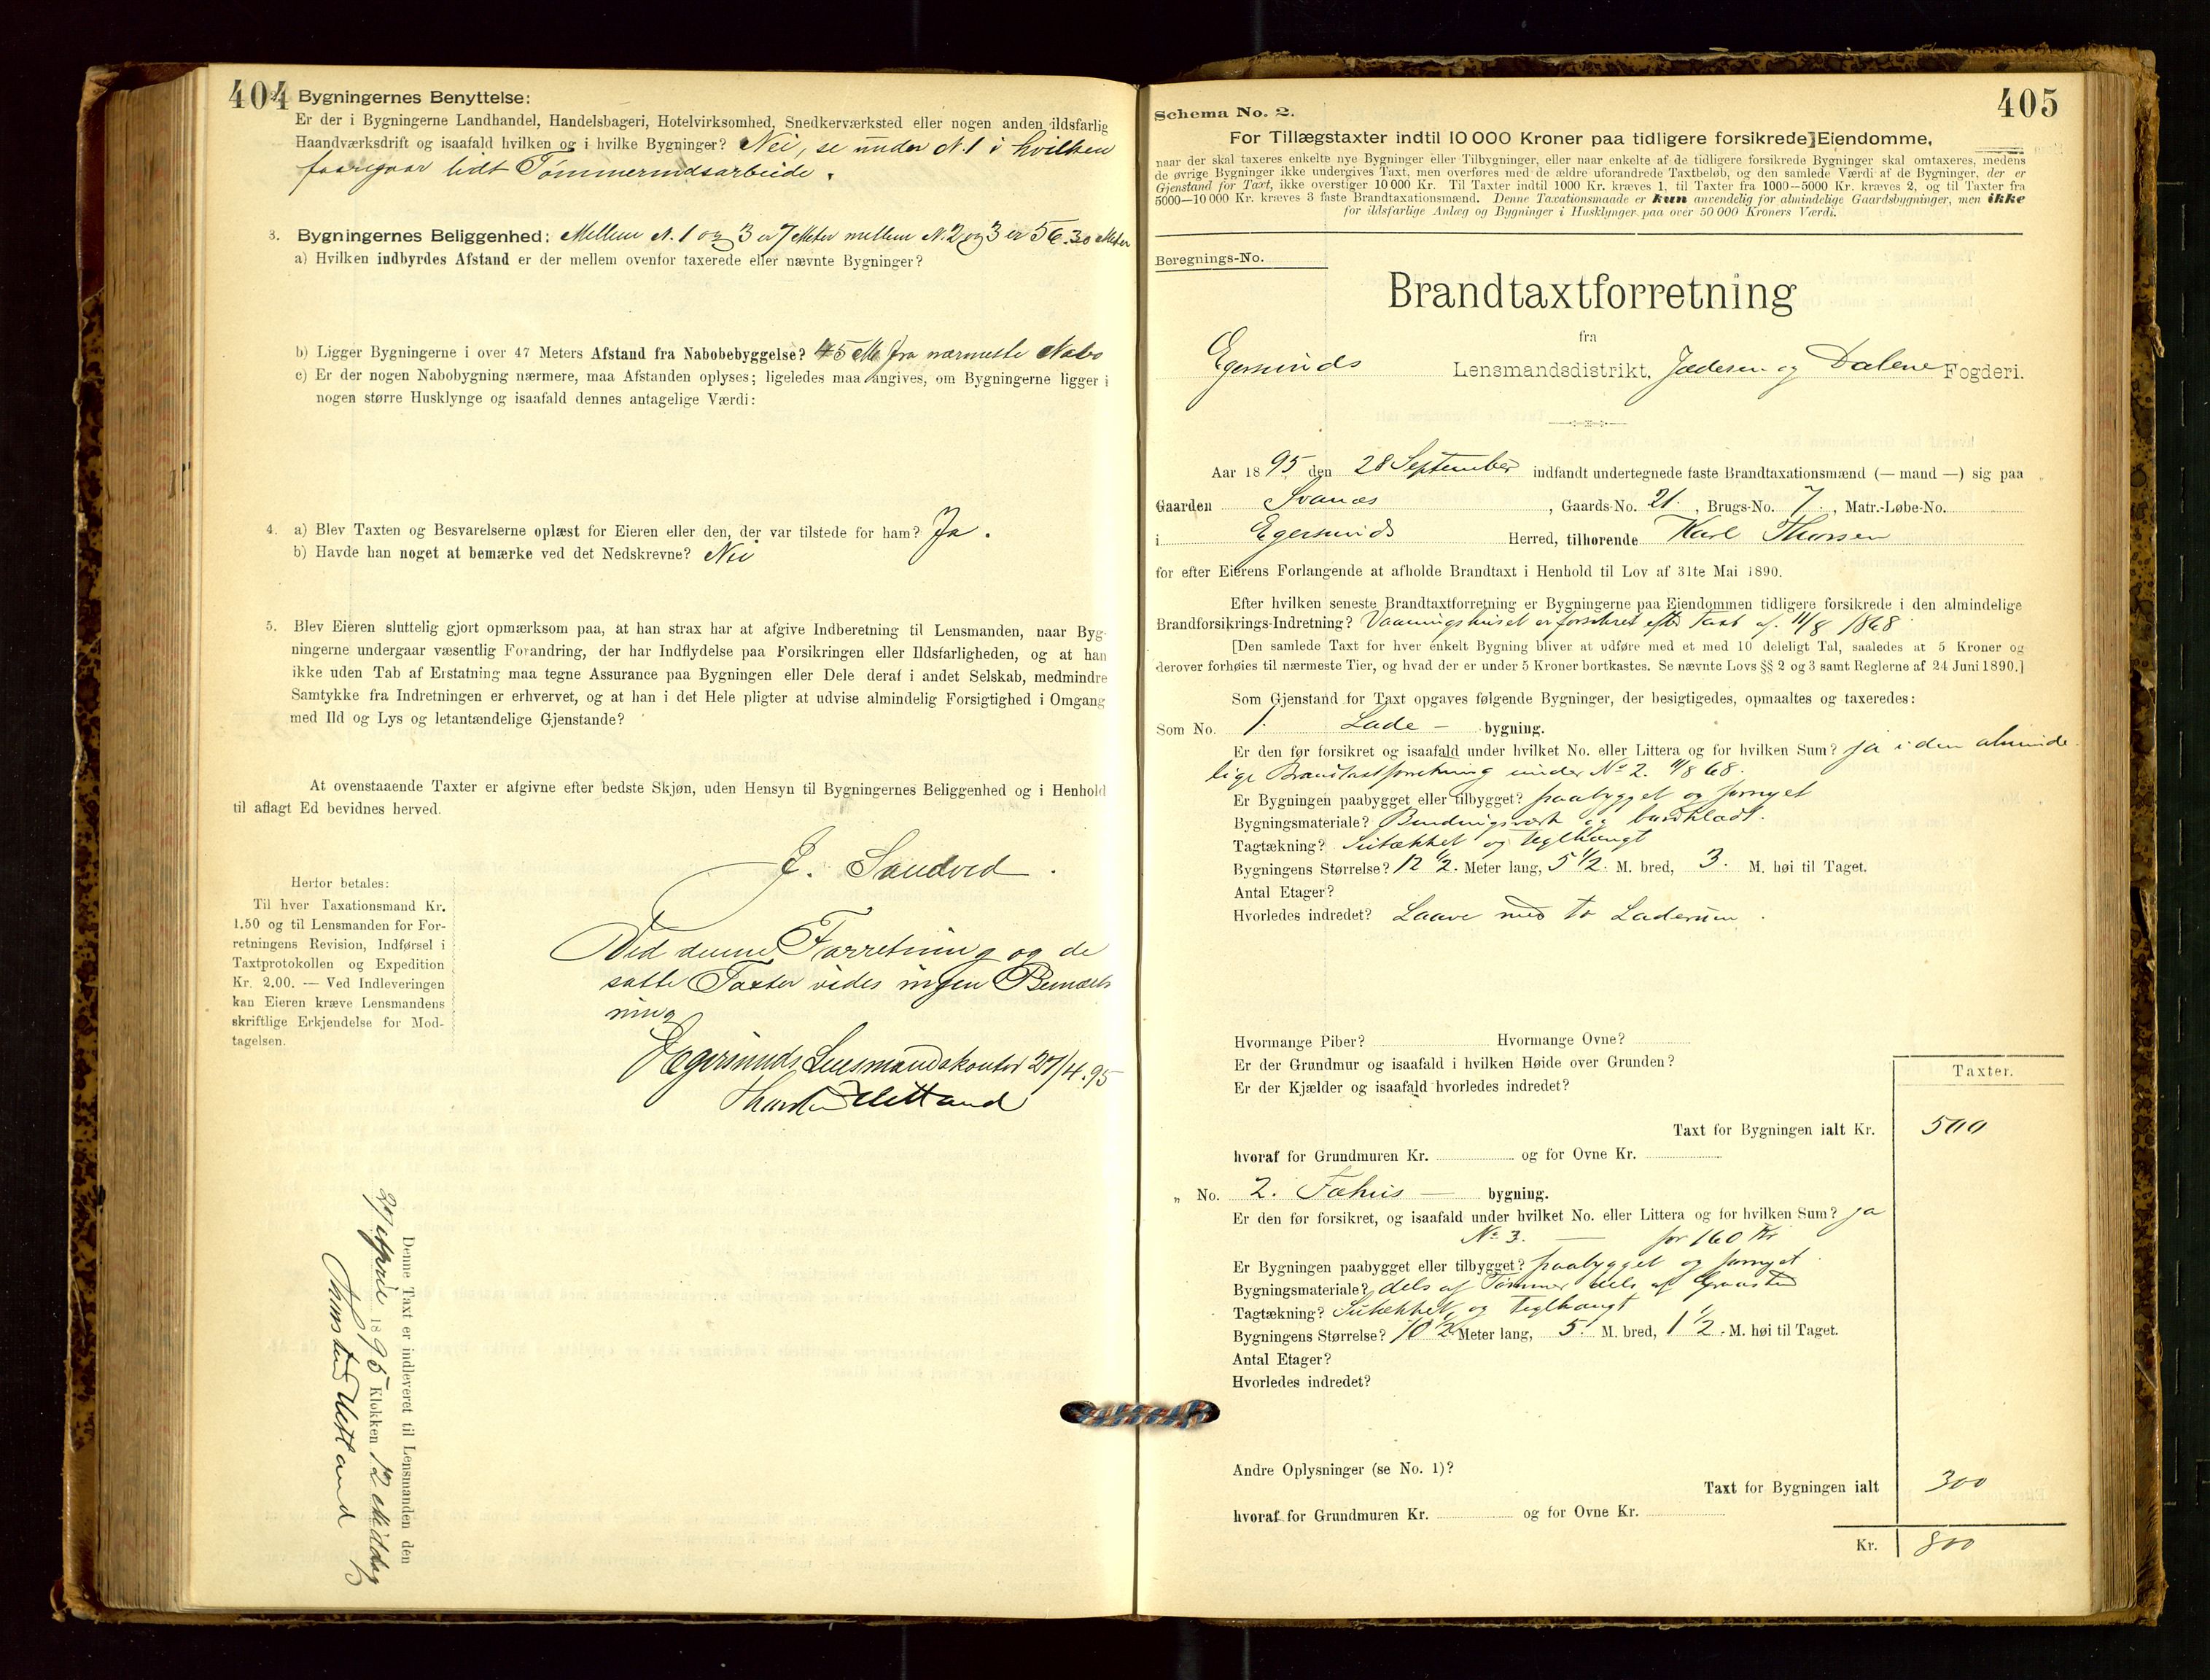 404
Bygningernes Benyttelse:
Er der i Bygningerne Landhandel, Handelsbageri, Hotelvirksomhed, Snedkerværksted eller nogen anden ildsfarlig
Haandværksdrift og isaafald hvilken og i hvilke Bygninger? Nei, se under N. 1 i hvilken
foregaar lidt Tømmermdsarbeide.
3. Bygningernes Beliggenhed: Mellem N. 1 og 3 er 7 Meter mellem N. 2 og 3 er 56.30 Meter
a) Hvilken indbyrdes Afstand er der mellem ovenfor taxerede eller nævnte Bygninger?
b) Ligger Bygningerne i over 47 Meters Afstand fra Nabobebyggelse? 45 M fra nærmeste Nabo
c) Er der nogen Nabobygning nærmere, maa Afstanden oplyses; ligeledes maa angives, om Bygningerne ligger i
nogen større Husklynge og isaafald dennes antagelige Værdi:
4. a) Blev Taxten og Besvarelserne oplæst for Eieren eller den, der var tilstede for ham? Ja.
b) Havde han noget at bemærke ved det Nedskrevne? Nei
5. Blev Eieren sluttelig gjort opmærksom paa, at han strax har at afgive Indberetning til Lensmanden, naar Byg-
ningerne undergaar væsentlig Forandring, der har Indflydelse paa Forsikringen eller Ildsfarligheden, og at han
ikke uden Tab af Erstatning maa tegne Assurance paa Bygningen eller Dele deraf i andet Selskab, medmindre
Samtykke fra Indretningen er erhvervet, og at han i det Hele pligter at udvise almindelig Forsigtighed i Omgang
med Ild og Lys og letantændelige Gjenstande?
At ovenstaaende Taxter er afgivne efter bedste Skjøn, uden Hensyn til Bygningernes Beliggenhed og i Henhold
til aflagt Ed bevidnes herved.
J. Sandved.
Herfor betales:
Til hver Taxationsmand Kr.
1.50 og til Lensmanden for For-
retningens Revision, Indførsel i
Taxtprotokollen og Expedition
Kr. 2.00. — Ved Indleveringen
kan Eieren kræve Lensmandens
skriftlige Erkjendelse for Mod-
tagelsen.
Ved denne Forretning og de
satte Taxter vides ingen Bemærk
ning
Egersunds Lensmandskontor 27/4.95
Thorsten Hetland
Denne Taxt er indleveret til Lensmanden den
27 April 1895 Klokken 12 Middag
Thorsten Hetland
405
Schema No. 2.
For Tillægstaxter indtil 10 000 Kroner paa tidligere forsikrede Eiendomme,
naar der skal taxeres enkelte nye Bygninger eller Tilbygninger, eller naar enkelte af de tidligere forsikrede Bygninger skal omtaxeres, medens
de øvrige Bygninger ikke undergives Taxt, men overføres med de ældre uforandrede Taxtbeløb, og den samlede Værdi af de Bygninger, der er
Gjenstand for Taxt, ikke overstiger 10 000 Kr. Til Taxter indtil 1000 Kr. kræves 1, til Taxter fra 1000—5000 Kr. kræves 2, og til Taxter fra
5000—10 000 Kr. kræves 3 faste Brandtaxationsmænd. Denne Taxationsmaade er kun anvendelig for almindelige Gaardsbygninger, men ikke
for ildsfarlige Anlæg og Bygninger i Husklynger paa over 50 000 Kroners Værdi.
Beregnings-No.
Brandtaxtforretning
fra
Egersunds Lensmandsdistrikt, Jæderen og Dalene Fogderi.
Aar 1895 den 28 September indfandt undertegnede faste Brandtaxationsmænd (— mand —) sig paa
Gaarden Svanæs, Gaards-No. 21., Brugs-No. 7., Matr.-Løbe-No.
i Egersunds Herred, tilhørende Karl Thorsen
for efter Eierens Forlangende at afholde Brandtaxt i Henhold til Lov af 31te Mai 1890.
Efter hvilken seneste Brandtaxtforretning er Bygningerne paa Eiendommen tidligere forsikrede i den almindelige
Brandforsikrings-Indretning? Vaaningshuset er forsikret efter Taxt af. 11/8 1868
[Den samlede Taxt for hver enkelt Bygning bliver at udføre med et med 10 deleligt Tal, saaledes at 5 Kroner og
derover forhøies til nærmeste Tier, og hvad der er under 5 Kroner bortkastes. Se nævnte Lovs §§ 2 og 3 samt Reglerne af 24 Juni 1890.]
Som Gjenstand for Taxt opgaves følgende Bygninger, der besigtigedes, opmaaltes og taxeredes:
Som No. 1. Lade — bygning.
Er den før forsikret og isaafald under hvilket No. eller Littera og for hvilken Sum? ja i den alminde
lige Brandtaxtforretning under No 2. 11/8 68.
Er Bygningen paabygget eller tilbygget? paabygget og fornyet
Bygningsmateriale? Bindingsværk og bordklædt.
Tagtækning? Sutækket og teglhængt
Bygningens Størrelse? 12 1/2. Meter lang, 5 1/2. M. bred, 3. M. høi til Taget.
Antal Etager?
Hvorledes indredet? Laave med to Laderum.
Hvormange Piber? Hvormange Ovne?
Er der Grundmur og isaafald i hvilken Høide over Grunden?
Er der Kjælder og isaafald hvorledes indredet?
Taxter.
Taxt for Bygningen ialt Kr. 500
hvoraf for Grundmuren Kr. og for Ovne Kr.
" No. 2. Fæhus — bygning.
Er den før forsikret, og isaafald under hvilket No. eller Littera og for hvilken Sum? ja
No 3. — for 160 Kr
Er Bygningen paabygget eller tilbygget? paabygget og fornyet
Bygningsmateriale? dels af Tømmer dels af Graasten
Tagtækning? Sutækket og Teglhængt
Bygningens Størrelse? 10 1/2 Meter lang, 5. M. bred, 1 1/2. M. høi til Taget.
Antal Etager?
Hvorledes indredet?
Andre Oplysninger (se No. 1)?
Taxt for Bygningen ialt 300
hvoraf for Grundmuren Kr. og for Ovne Kr.
Kr. 800